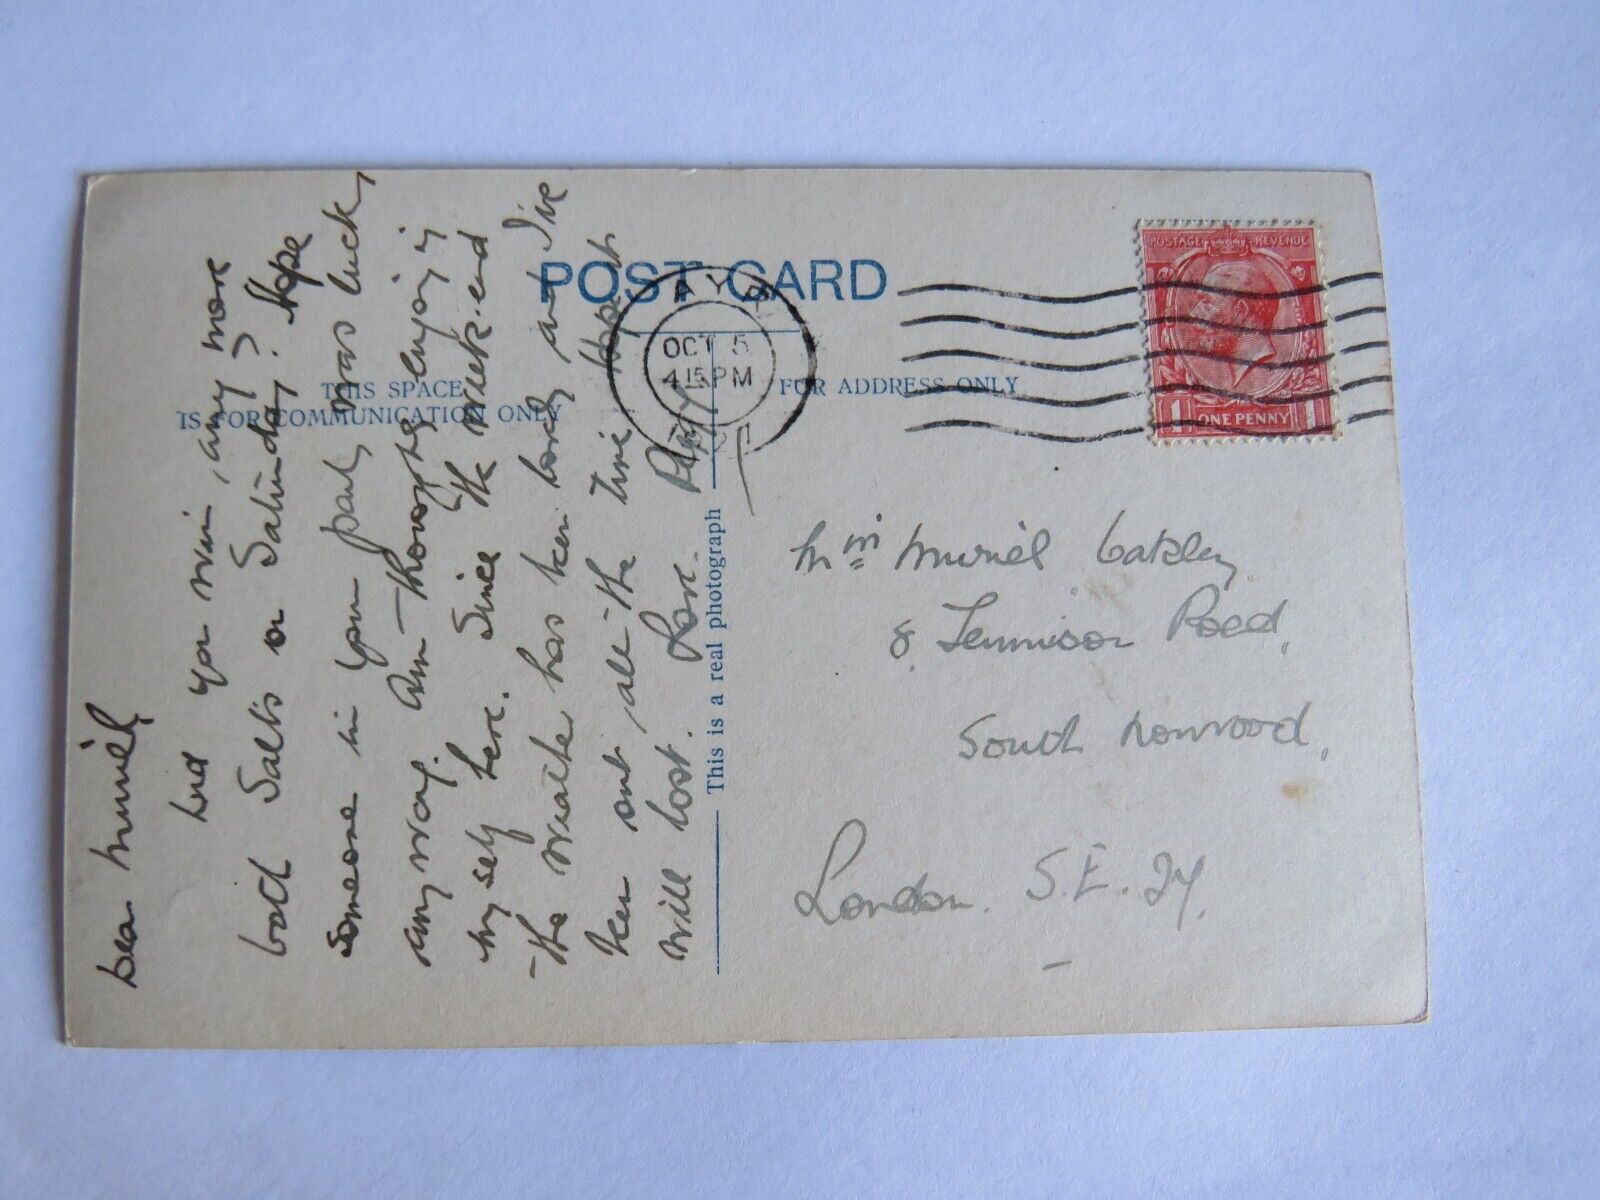 Dear Muriel,
Did you win any more
gold Salts on Saturday? Hope
someone in your party was lucky
anyway. Am thoroughly enjoying
myself here. Since the week-end
the weather has been lovely and I've
been out all the time. Hope it
will last. Love.
POST CARD
THIS SPACE
IS FOR COMMUNICATION ONLY
FOR ADDRESS ONLY
This is a real photograph
AYR
OCT 5
4 15 PM
POSTAGE REVENUE
1 ONE PENNY 1
Muriel Oakley
8, Tennison Road,
South Norwood,
London. S.E. 24.